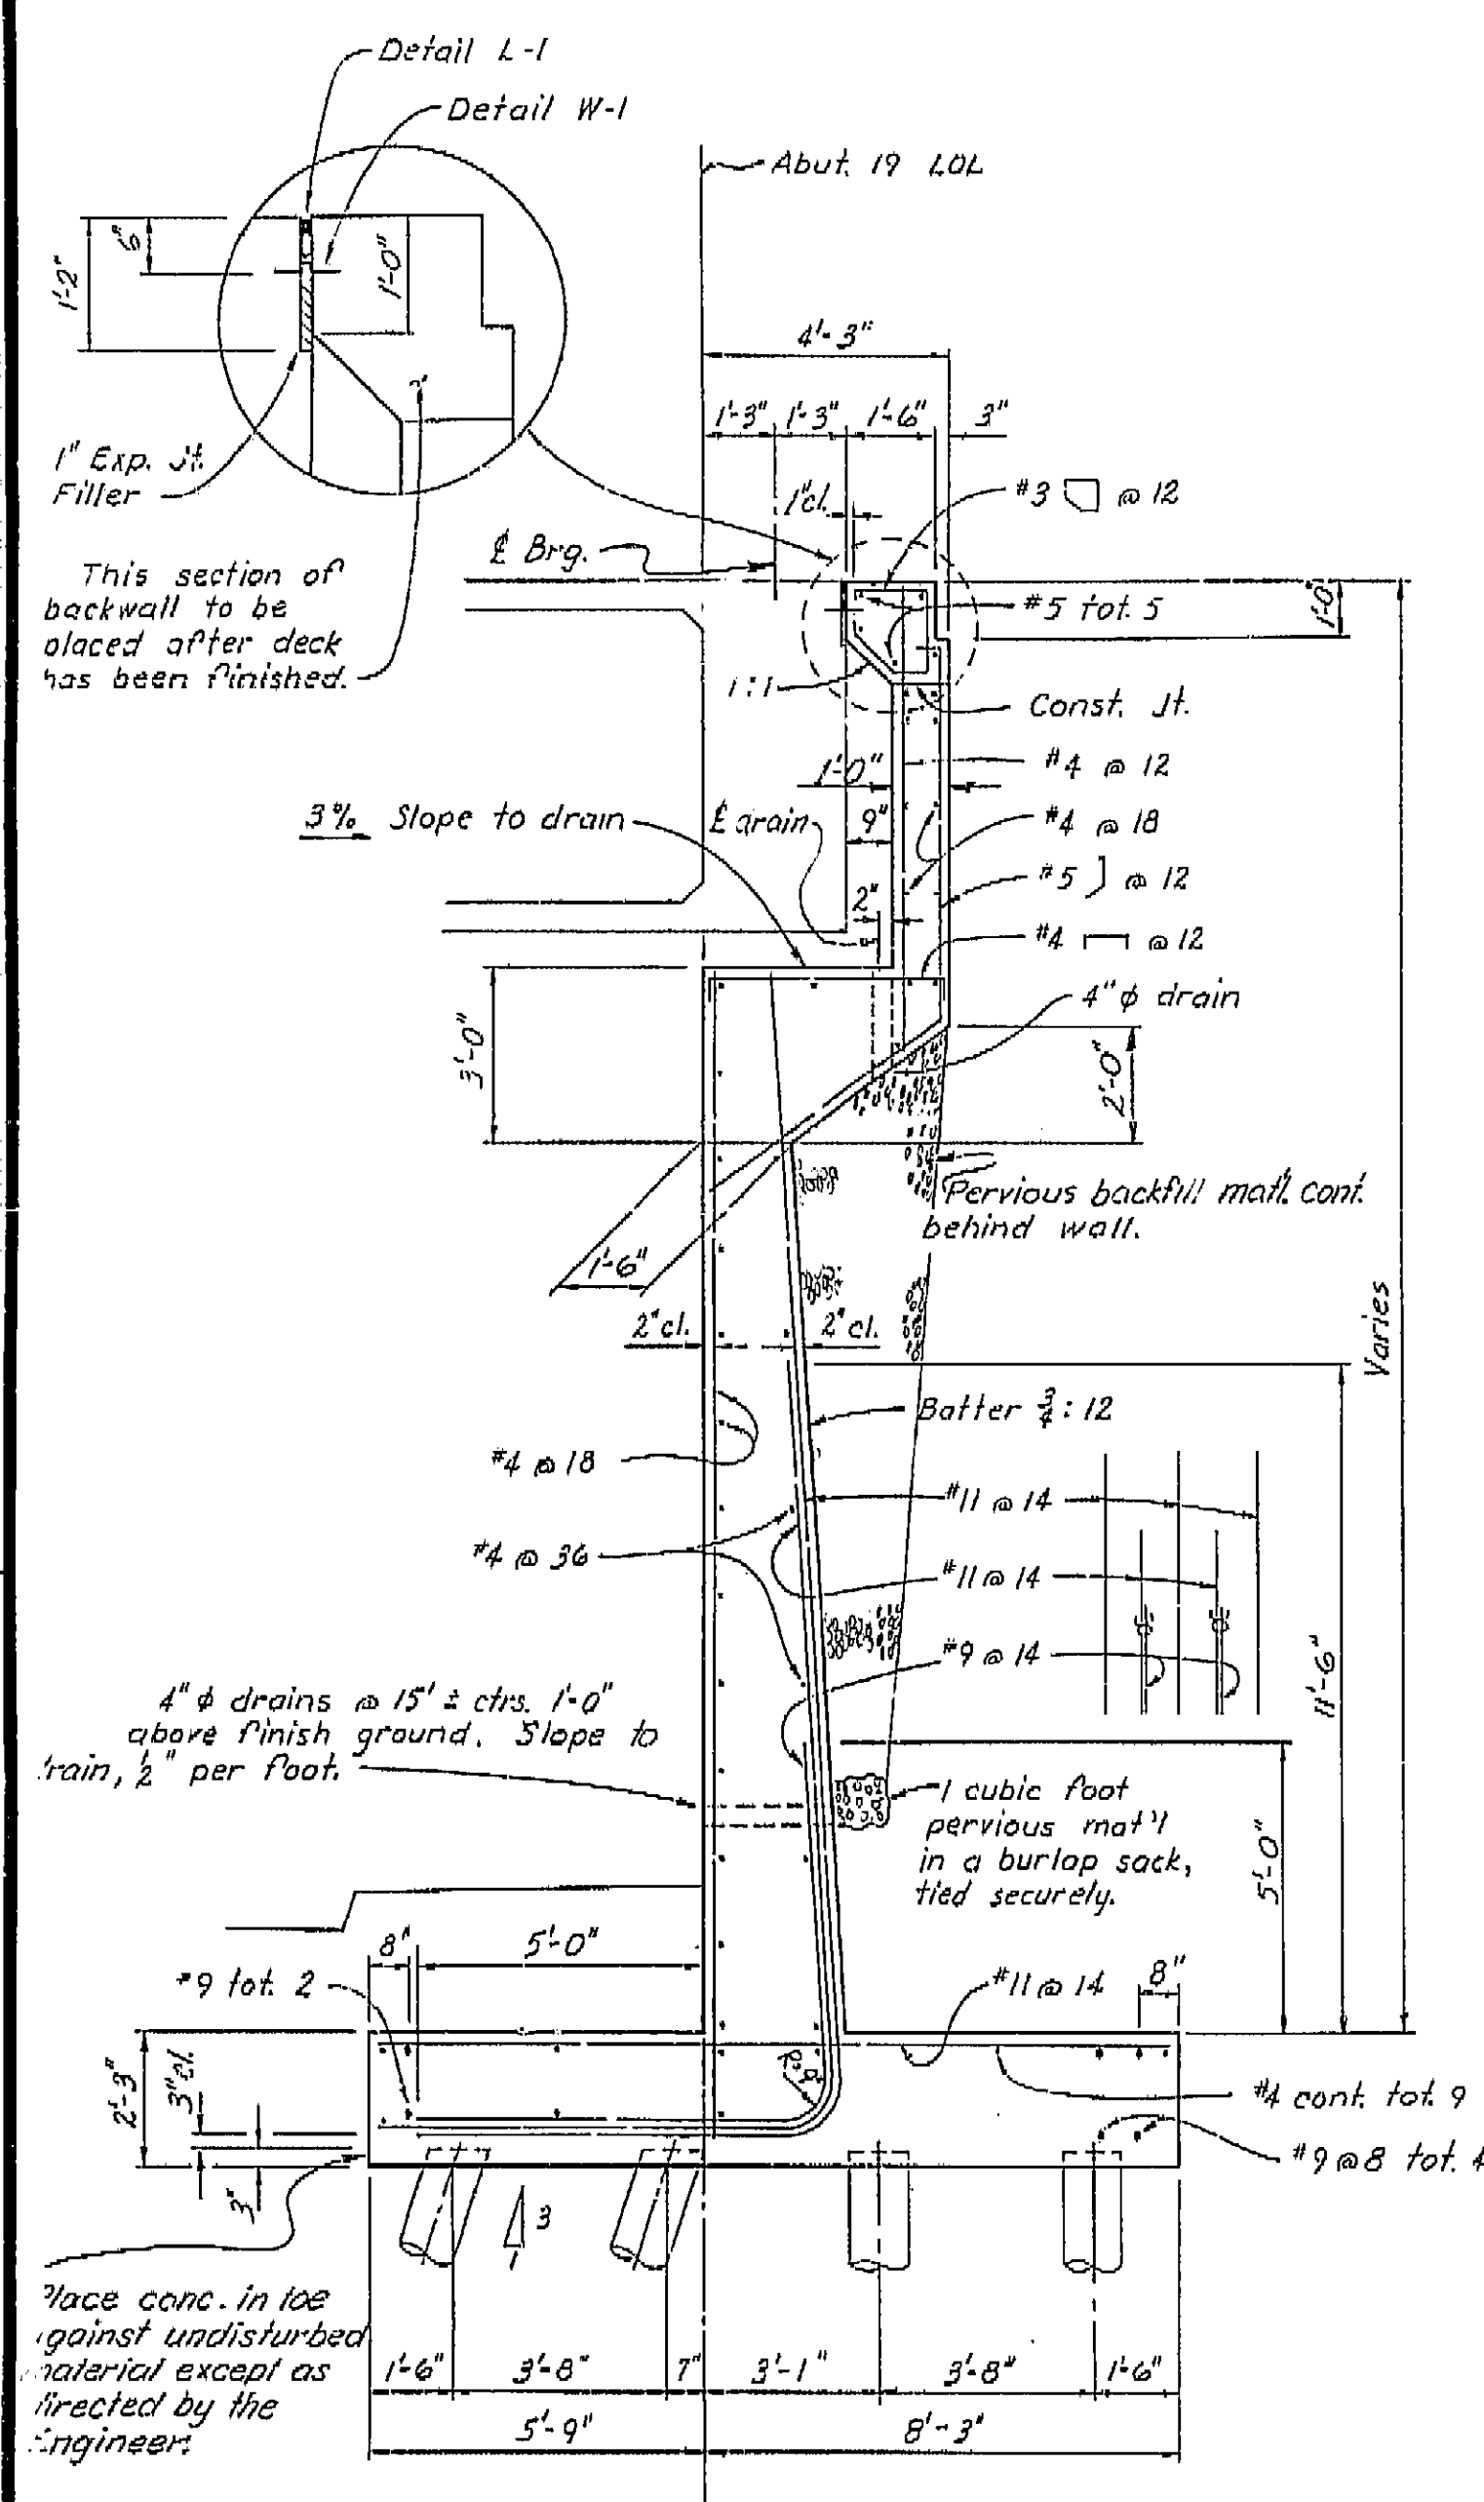 Detail L-1
Detail W-1
Abut. 19 LOL
6"
1'-2"
1'-0"
4'-3"
1'-3" 1'-3" 1'-6" 3"
1" Exp. Jt.
Filler
1" cl.
#3 @ 12
℄ Brg.
This section of
backwall to be
placed after deck
has been finished.
#5 tot. 5
1'-0"
1:1
Const. Jt.
1'-0"
#4 @ 12
3% Slope to drain
℄ drain
9"
#4 @ 18
2"
#5 @ 12
#4 @ 12
4" ϕ drain
3'-0"
2'-0"
Pervious backfill matl. cont.
behind wall.
1'-6"
2" cl.
2" cl.
Varies
Batter 3/4 : 12
#4 @ 18
#11 @ 14
#4 @ 36
#11 @ 14
#9 @ 14
11'-6"
4" ϕ drains @ 15' ± ctrs. 1'-0"
above finish ground. Slope to
rain, 1/2" per foot.
1 cubic foot
pervious mat'l
in a burlap sack,
tied securely.
5'-0"
8" 5'-0"
#9 tot. 2
#11 @ 14
8"
2'-3"
3" cl.
3"
#4 cont. tot. 9
#9 @ 8 tot. 4
3
1
Place conc. in toe
gainst undisturbed
material except as
directed by the
Engineer.
1'-6" 3'-8" 7" 3'-1" 3'-8" 1'-6"
5'-9" 8'-3"